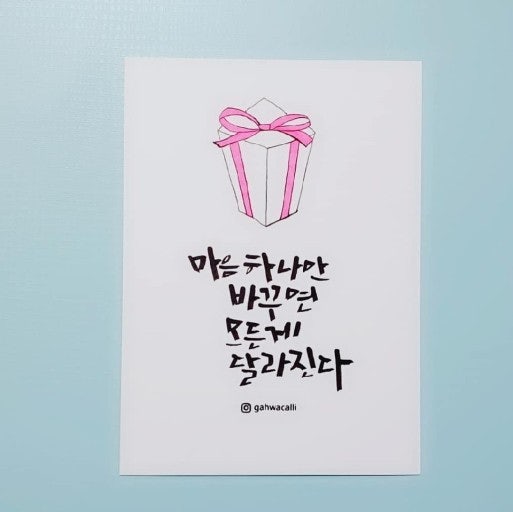 마음 하나만
바꾸면
모든게
달라진다
gahwacalli